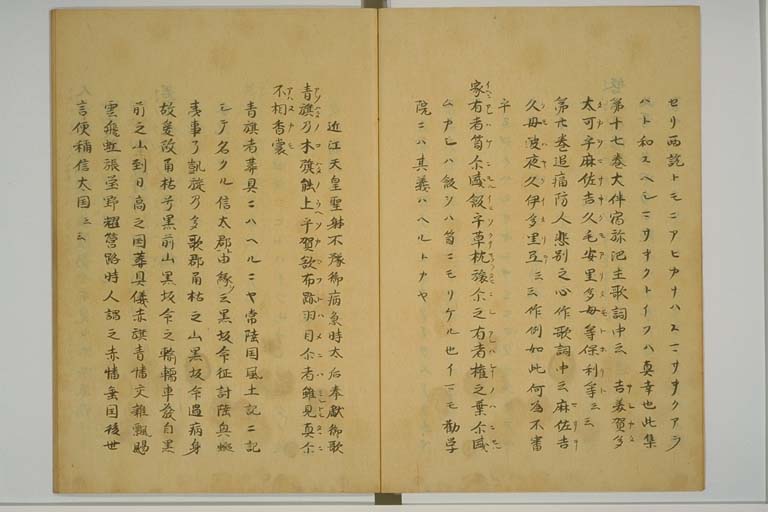 セリ両説トモニアヒカナハス マサキクアラ
ハト和スヘシ マサキクトイフハ真幸也此集
第十七巻大伴宿祢池主歌詞中云 吉美賀多
太可乎麻佐吉久毛安里多母等保利等云云
第廿巻追痛防人悲別之心作歌詞中云麻佐吉
久母波夜久伊多里弖云云作例如此何為不審
乎
家有者笥尓盛飯乎草枕旅尓之有者椎之葉尓盛
ムカシハ飯ヲハ笥ニモリケル也イマモ勧学
院ニハ其義ハヘルトカヤ
近江天皇聖躰不豫御病急時太后奉献御歌
青旗乃木旗能上乎賀欲布跡羽目尓者雖見真尓
不相香裳
青旗者葬具ニハヘルニヤ常陸国風土記ニ記
シテ名クル信太郡由縁云黒坂命征討陸奥蝦
夷事了凱旋乃多歌郡角枯之山黒坂命遇病身
故爰改角枯号黒前山黒坂命之輸轜車発自黒
前之山到日高之国葬具儀赤旗青幡交雑飄颺
雲飛虹張瑩野耀路時人謂之赤幡垂国後世
言便稱信太国云云